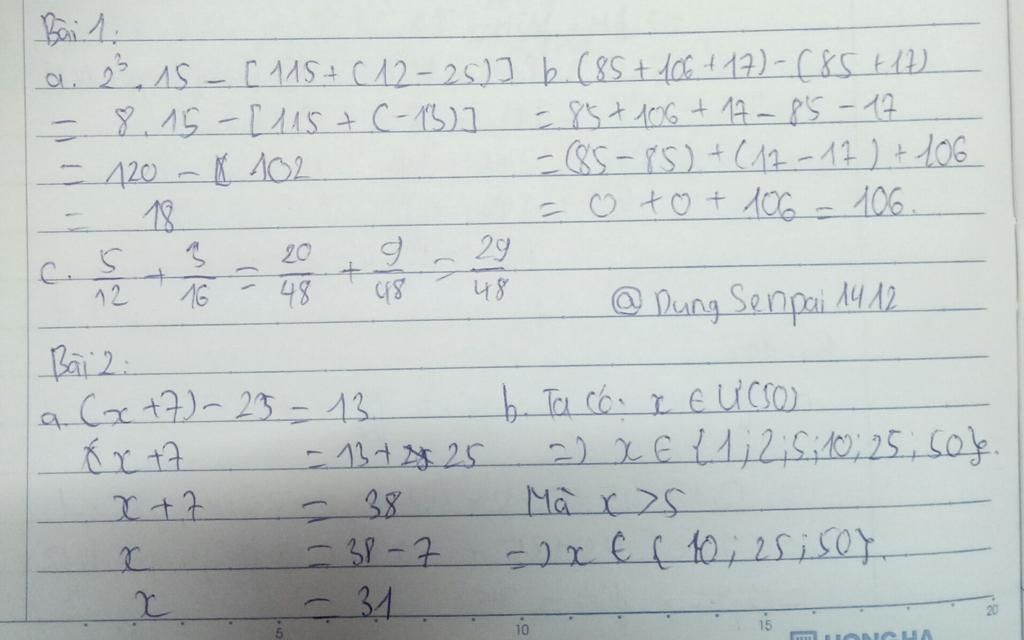 Bài 1:
a. 2³ . 15 - [115 + (12 - 25)] b. (85 + 106 + 17) - (85 + 17)
= 8 . 15 - [115 + (-13)] = 85 + 106 + 17 - 85 - 17
= 120 - 102 = (85 - 85) + (17 - 17) + 106
= 18 = 0 + 0 + 106 = 106.
c. 5/12 + 3/16 = 20/48 + 9/48 = 29/48
@ Dung Senpai 1412
Bài 2:
a. (x + 7) - 25 = 13 b. Ta có: x ∈ Ư(50)
x + 7 = 13 + 25 => x ∈ {1; 2; 5; 10; 25; 50}.
x + 7 = 38 Mà x > 5
x = 38 - 7 => x ∈ {10; 25; 50}.
x = 31
5 10 15 20
HONG HA